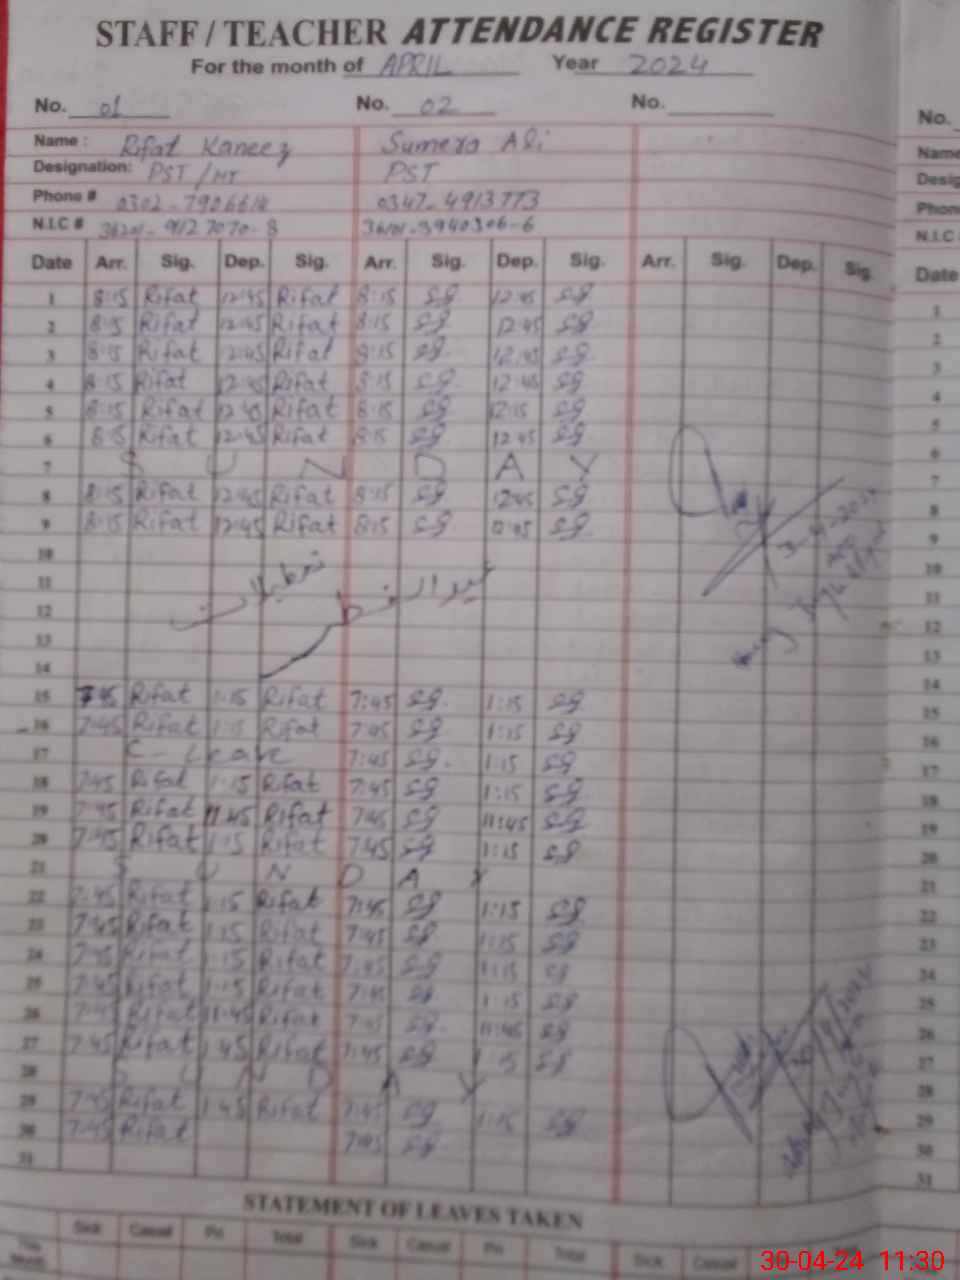 STAFF / TEACHER ATTENDANCE REGISTER
For the month of APRIL Year 2024
No. 01 No. 02 No. No.
Name : Rifat Kaneez Sumera Ali Name
Designation: PST / HT PST Desig
Phone # 0302-7906614 0347-4913773 Phone
N.I.C # 36201-9127070-8 36101-3940306-6 N.I.C #
Date Arr. Sig. Dep. Sig. Arr. Sig. Dep. Sig. Arr. Sig. Dep. Sig. Date
1 8:15 Rifat 12:45 Rifat 8:15 12:45 1
2 8:15 Rifat 12:45 Rifat 8:15 12:45 2
3 8:15 Rifat 12:45 Rifat 8:15 12:45 3
4 8:15 Rifat 12:45 Rifat 8:15 12:45 4
5 8:15 Rifat 12:45 Rifat 8:15 12:15 5
6 8:15 Rifat 12:45 Rifat 8:15 12:45 6
7 S U N D A Y 7
8 8:15 Rifat 12:45 Rifat 8:15 12:45 8
9 8:15 Rifat 12:45 Rifat 8:15 12:45 9
10 10
11 تعطیلات عیدالفطر 11
12 12
13 13
14 14
15 7:45 Rifat 1:15 Rifat 7:45 1:15 15
16 7:45 Rifat 1:15 Rifat 7:45 1:15 16
17 C - Leave 7:45 1:15 17
18 7:45 Rifat 1:15 Rifat 7:45 1:15 18
19 7:45 Rifat 11:45 Rifat 7:45 11:45 19
20 7:45 Rifat 1:15 Rifat 7:45 1:15 20
21 S U N D A Y 21
22 7:45 Rifat 1:15 Rifat 7:45 1:15 22
23 7:45 Rifat 1:15 Rifat 7:45 1:15 23
24 7:45 Rifat 1:15 Rifat 7:45 1:15 24
25 7:45 Rifat 1:15 Rifat 7:45 1:15 25
26 7:45 Rifat 11:45 Rifat 7:45 11:45 26
27 7:45 Rifat 1:45 Rifat 7:45 27
28 S U N D A Y 28
29 7:45 Rifat 1:45 Rifat 7:45 1:15 29
30 7:45 Rifat 7:45 30
31 31
STATEMENT OF LEAVES TAKEN
Sick Casual Pri Total Sick Casual Pri Total Sick Casual
This Month
30-04-24 11:30